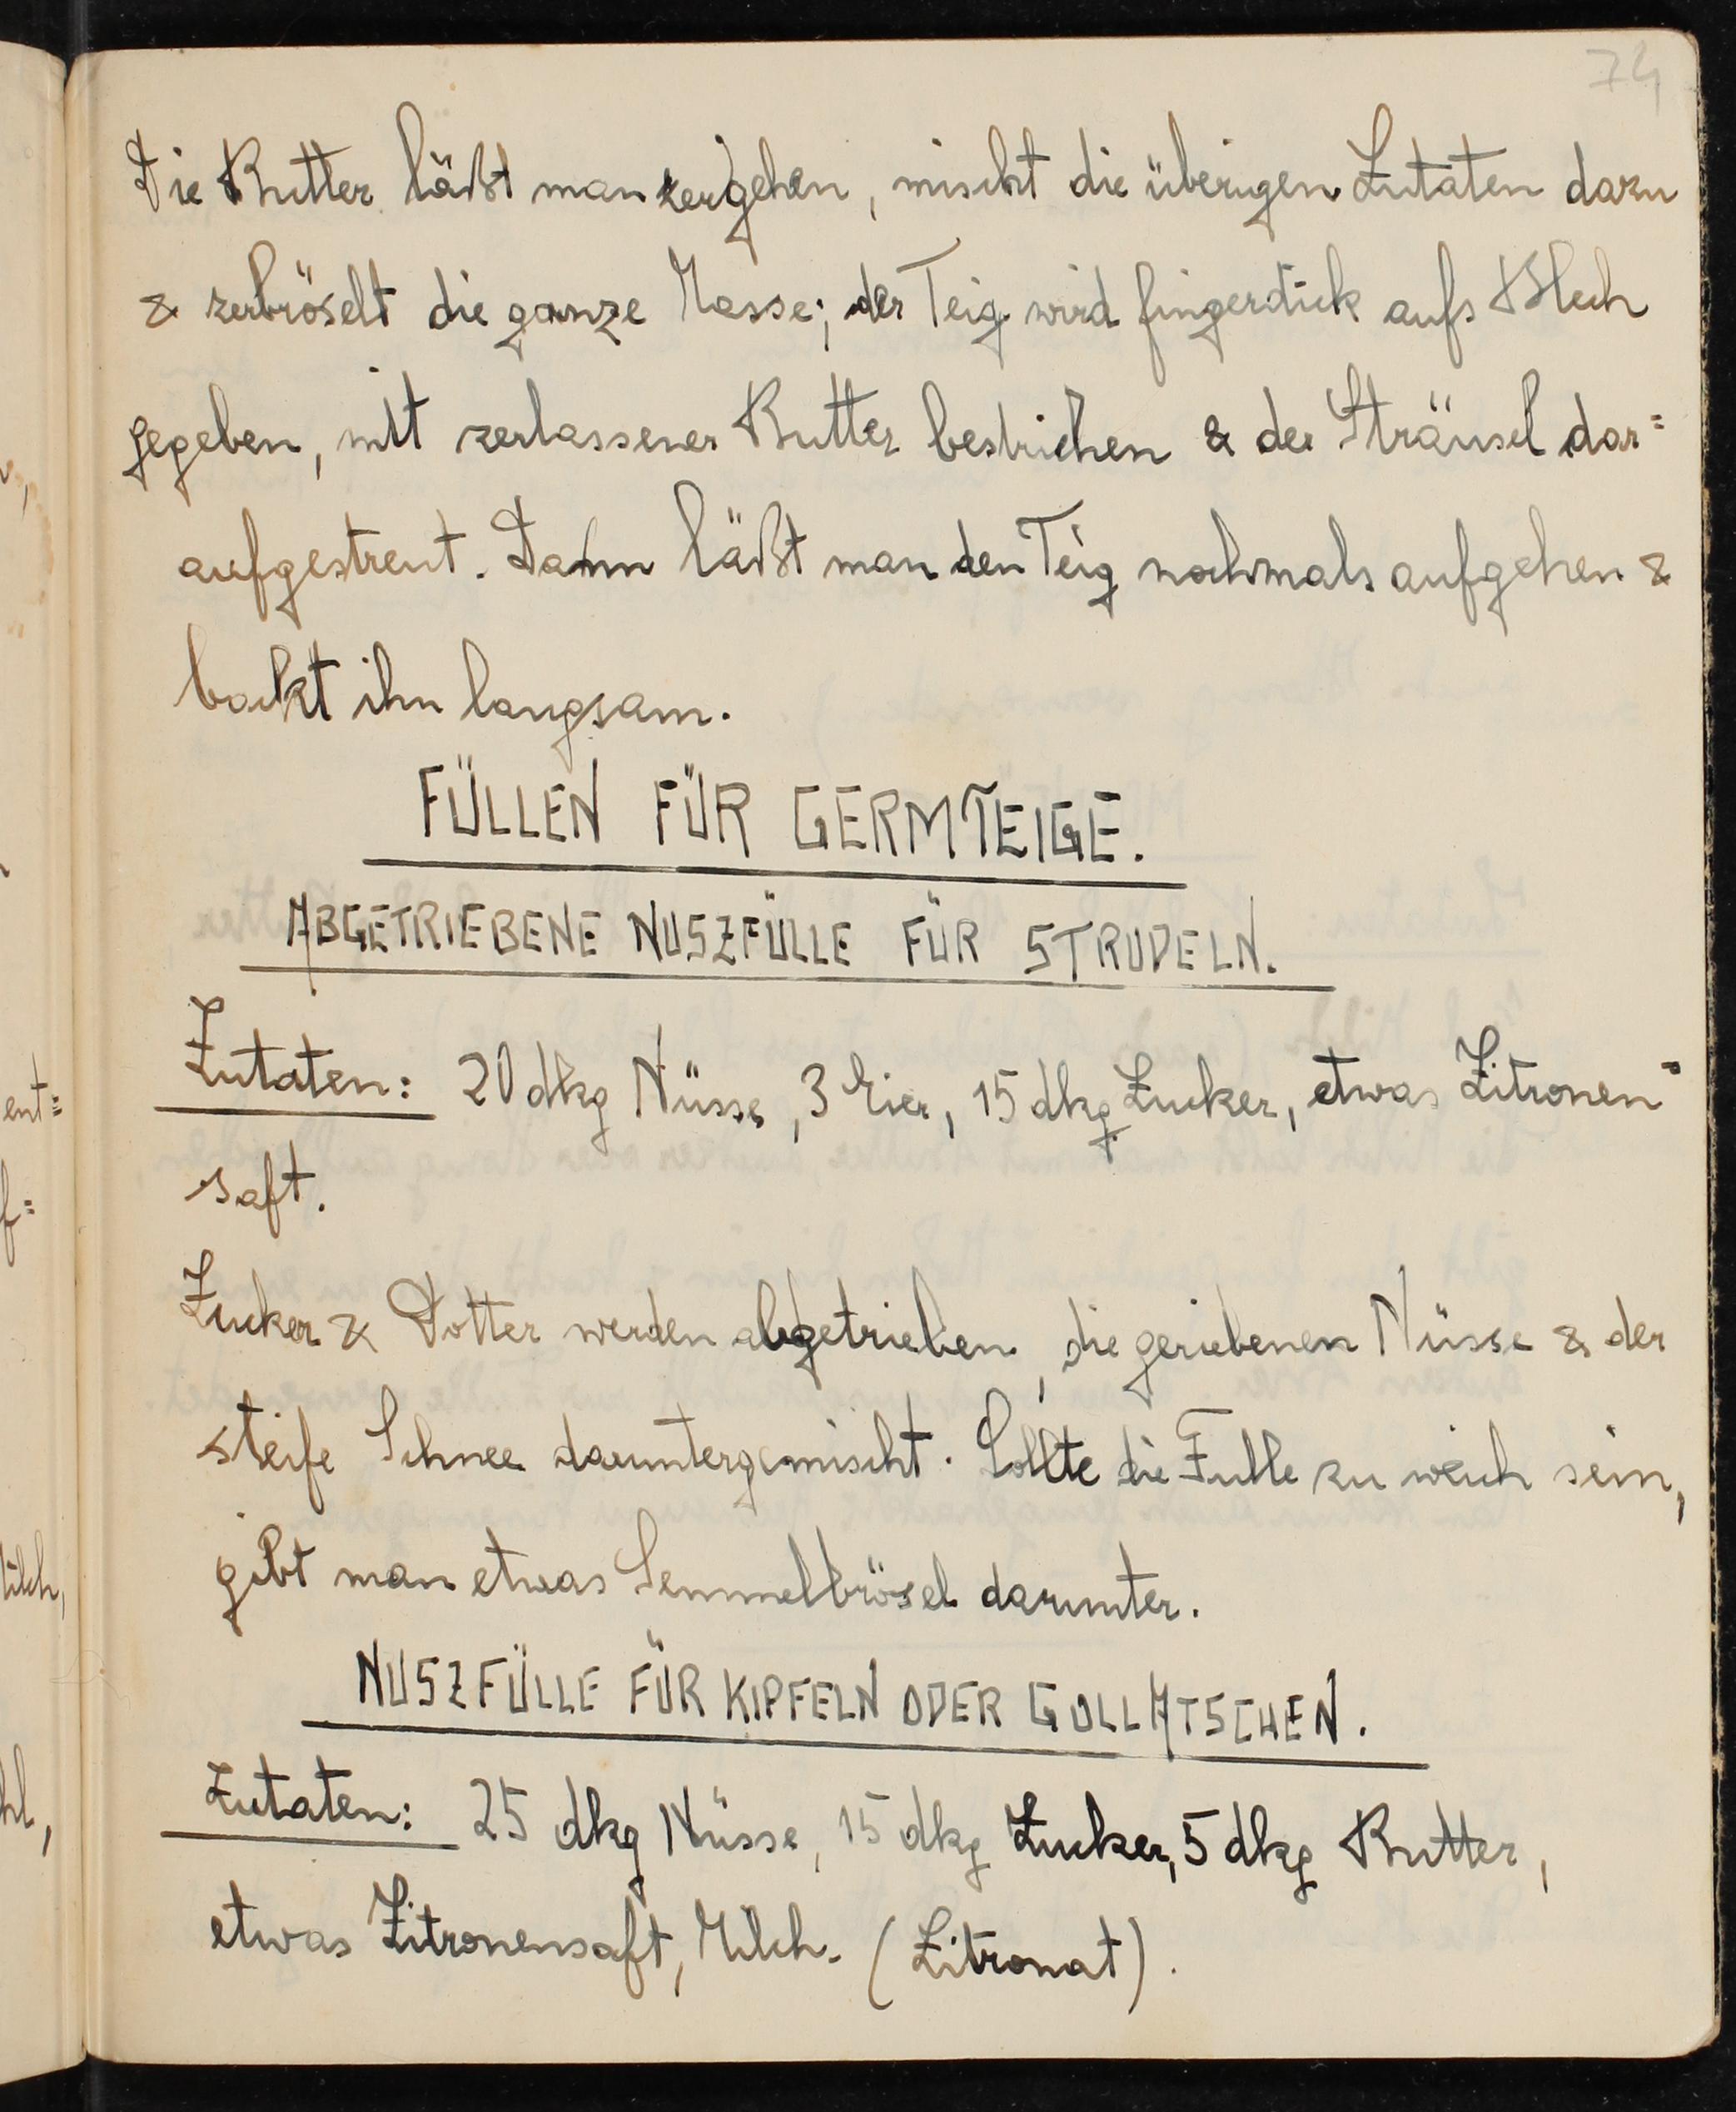 74
Die Butter läßt man zergehen, mischt die überigen Zutaten dazu
& zerbröselt die ganze Masse; der Teig wird fingerdick aufs Blech
gegeben, mit zerlassener Butter bestrichen & der Sträusel dar=
aufgestreut. Dann läßt man den Teig nochmals aufgehen &
backt ihn langsam.
FÜLLEN FÜR GERMTEIGE.
ABGETRIEBENE NUSZFÜLLE FÜR STRUDELN.
Zutaten: 20 dkg Nüsse, 3 Eier, 15 dkg Zucker, etwas Zitronen=
saft.
Zucker & Dotter werden abgetrieben, die geriebenen Nüsse & der
steife Schnee daruntergemischt. Sollte die Fulle zu weich sein,
gibt man etwas Semmelbrösel darunter.
NUSZFÜLLE FÜR KIPFELN ODER GOLLATSCHEN.
Zutaten: 25 dkg Nüsse, 15 dkg Zucker, 5 dkg Butter,
etwas Zitronensaft, Milch. (Zitronat).